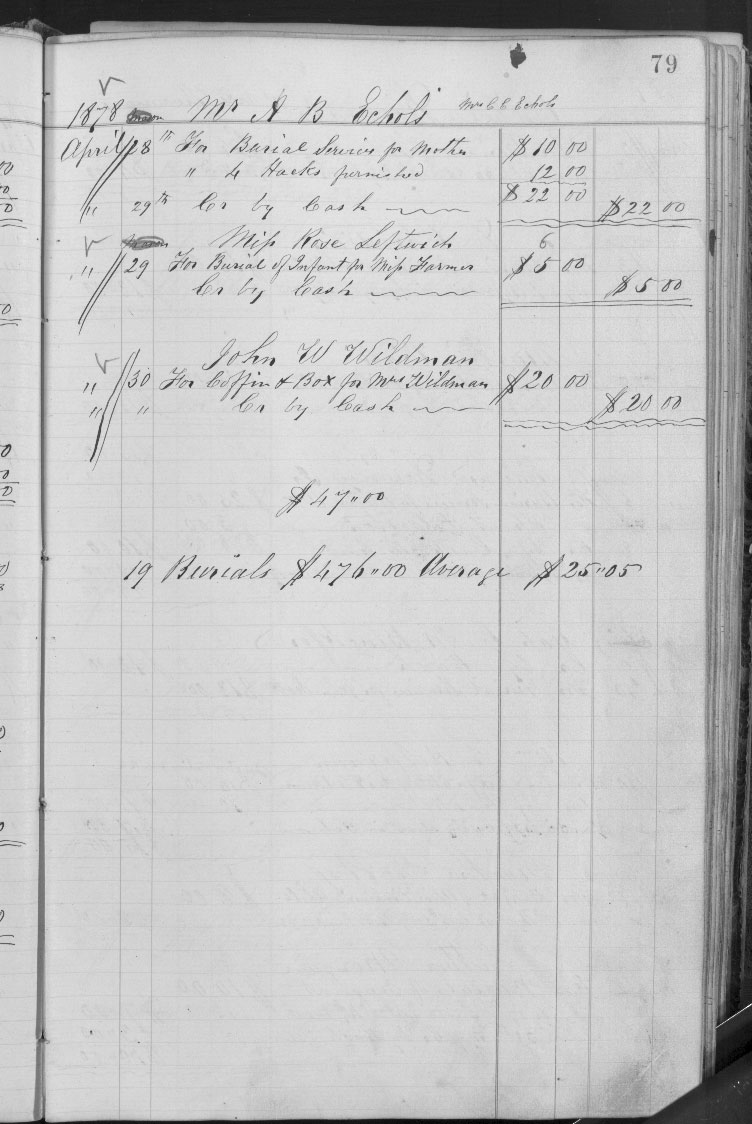 79
1878 Mr A B Echols Mrs C C Echols
April 28th For Burial Service for Mother $10 00
" 4 Hacks furnished 12 00
$22 00
" 29th Cr by Cash $22 00
Miss Rose Leftwich 6
" 29 For Burial of Infant for Miss Farmer $5 00
Cr by Cash $5 00
John W Wildman
" 30 For Coffin & Box for Mrs Wildman $20 00
" " Cr by Cash $20 00
$47"00
19 Burials $476"00 Average $25"05